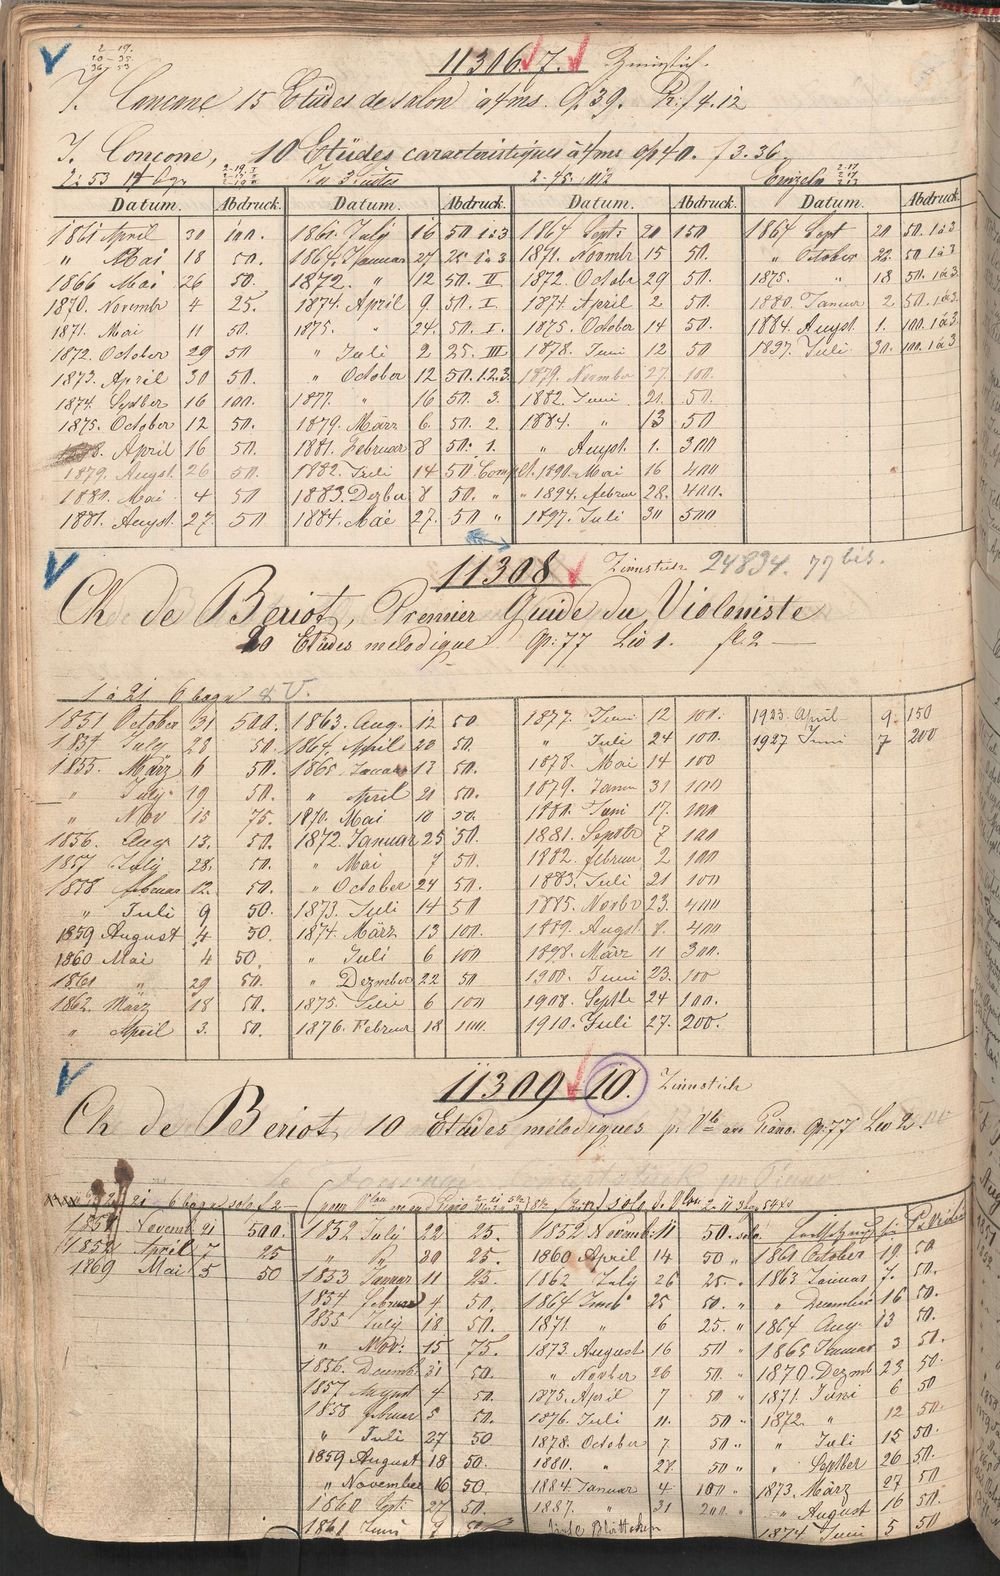 2-19.
20-35
36-53
11306. 7. Zinnstich.
J. Concone 15 Etüdes de salon à 4 ms. Op. 39. Pr. f 4.12
J. Concone, 10 Etüdes caracteristiques à 4 ms op 40. f 3.36
2 à 53 14 bgn In 3 Suites 2-45. 11 1/2 Einzeln
Datum. Abdruck. Datum. Abdruck. Datum. Abdruck. Datum. Abdruck.
1861 April 30 100. 1861. July 16 50 1à3 1864 Sept: 20 150 1864 Sept 20 50. 1à3
" Mai 18 50. 1864. Januar 27 25 1à3 1871. Novembr 15 50. " October 22 50 1à3
1866 Mai 26 50. 1872. " 12 50 II 1872. Octobr 29 50. 1875. " 18 50. 1à3
1870. Novembr 4 25. 1874. April 9 50. I. 1874. April 2 50. 1880. Januar 2 50. 1à3.
1871. Mai 11 50. 1875. " 24. 50. I. 1875. October 14 50. 1884. Augst. 1. 100. 1à3.
1872. October 29 50 " Juli 2 25. III 1878. Juni 12 50 1897. Juli 30. 100. 1à3
1873. April 30 50. " October 12 50. 1.2.3. 1879. Novmber 27. 100.
1874. Septber 16 100. 1877. " 16 50. 3. 1882. Juni 21. 50.
1875. October 12 50. 1879. März 6. 50. 2. 1884. " 13 50
April 16 50. 1881. Februar 8 50. 1. " Augst. 1. 300
1879. Augst. 26 50. 1882. Juli 14 50 Complt. 1890. Mai 16 400
1880. Mai 4 50 1883. Dezber 8 50. " 1894. februr 28. 400.
1881. Augst. 27. 50 1884. Mai 27. 50 " 1897. Juli 30 500
11308 Zinnstich 24834. 77 bis.
Ch de Beriot, Premier Guide du Violoniste
20 Etüdes mélodique Op: 77 Liv 1. fl. 2 —
1 à 21 6 bogn & V.
1851 October 31 500. 1863. Aug. 12 50 1877. Juni 12 100. 1923. April 9. 150
1854 July 28 50. 1864. April 20 50. " Juli 24 100. 1927 Juni 7 200
1855. März 6 50. 1865. Januar 13 50. 1878. Mai 14 100
" July 19 50. " April 21 50. 1879. Janur 31 100
" Nov 15 75. 1870. Mai 10 50. 1880. Juni 17. 200
1856. Aug 13. 50. 1872. Januar 25 50. 1881. Septbr 7 100
1857 July 28. 50. " Mai 7 50. 1882. februr 2 100
1858 februar 12. 50. " October 24 50. 1883. Juli 21 100
" Juli 9 50. 1873. Juli 14 50 1885. Novbr 23. 400
1859 August 4 50. 1874. März 13 100. 1889. Augst 8. 400
1860 Mai 4 50. " Juli 6 100 1898. März 11 300.
1861 " 29 50. " Dezmber 22 50 1900. Juni 23. 100
1862. März 18 50. 1875. Juli 6 100 1908. Septbr 24 100.
" April 3. 50. 1876. Februr 18 100. 1910. Juli 27. 200.
11309-10. Zinnstich
Ch de Beriot, 10 Etüdes mélodiques p. Vlo avec Piano. Op: 77 Liv 2.
1851 Novemb 21 500. 1852 July 22 25. 1852 Novemb: 11 50. solo.
1852. April 7 25 " 20 25. 1860 April 14 50 " 1861 October 19. 50
1869 Mai 5 50 1853 Januar 11 25. 1862 July 26 25. " 1863 Januar 7. 50.
1854 februar 4 50. 1864 25 50. " " Decembr 16 50.
1855 July 18 50. 1871 " 6 25. " 1864 Aug. 13 50.
" Nov: 15 75. 1873. August 16 50 " 1865 Januar 3 50.
1856. Decemb. 31 50. " Novber 26 50 " 1870. Dezmb 23 50.
1857 August 4 50. 1875. April 7 50 " 1871. Juni 6 50
1858 februar 5 50. 1876. Juli 11. 50 " 1872. " 12 50.
" Juli 27 50 1878. October 7 50 " " Juli 15 50.
1859 August 18 50. 1880. " 27. 50 " " Septber 26 50.
" November 16 50. 1884. Januar 4 100 " 1873. März 27 50
1860 Sept: 27 50. 1887. " 31 200 " " August 16 50.
1861 Juni 7 50 1874 Juni 5 50